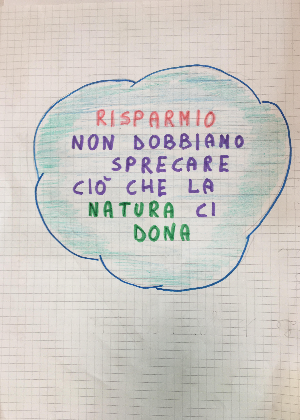 RISPARMIO
NON DOBBIAMO
SPRECARE
CIÒ CHE LA
NATURA CI
DONA